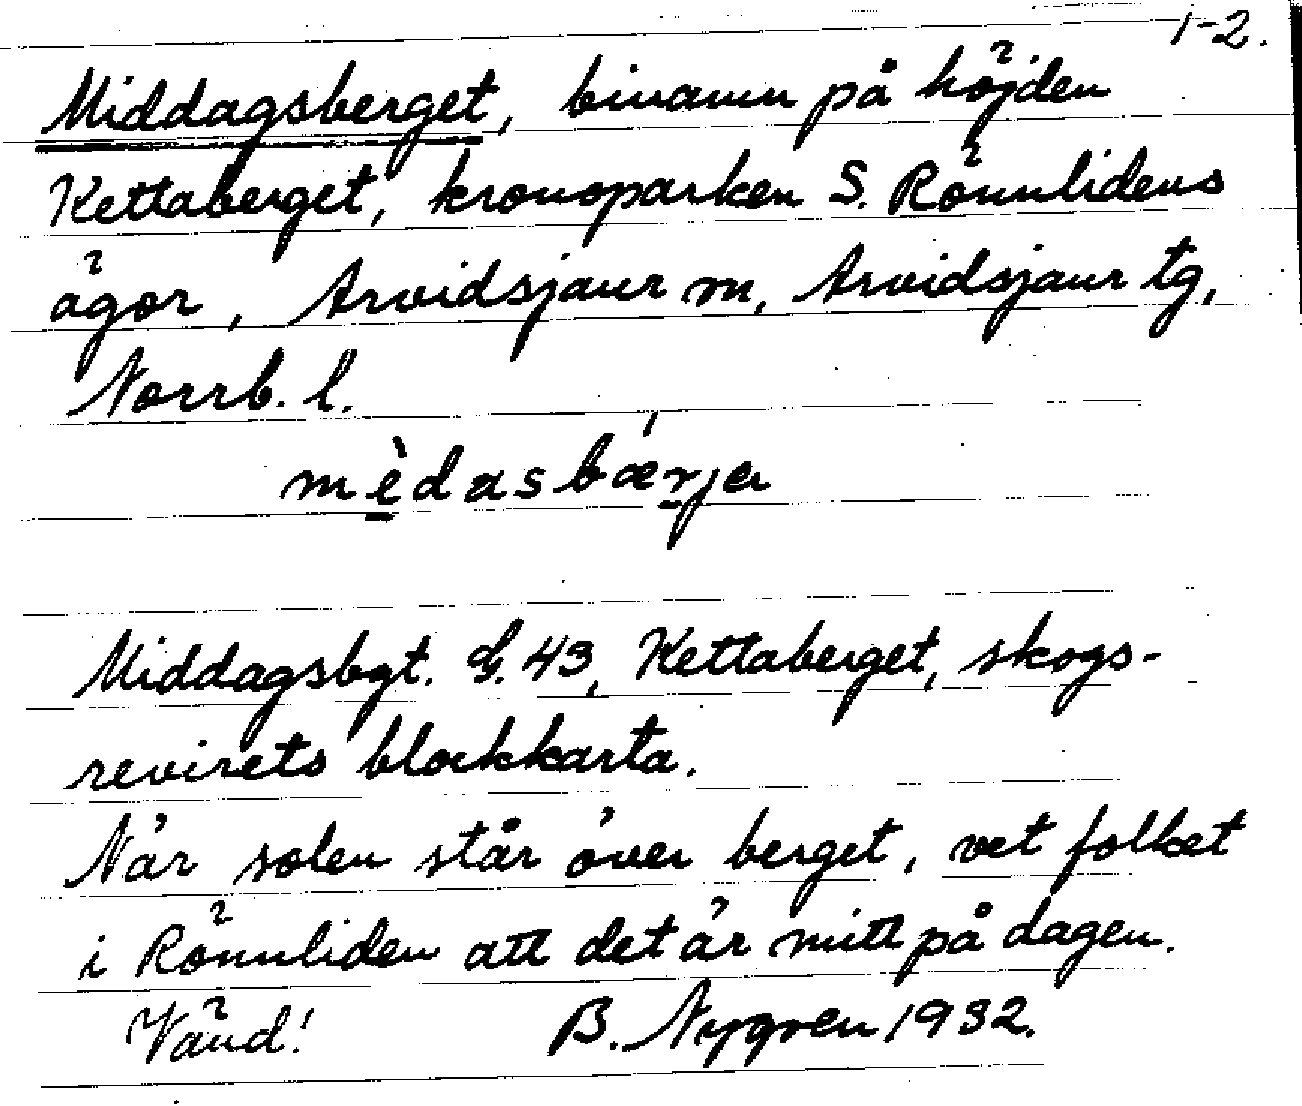 1-2.
Middagsberget, binamn på höjden
Kettaberget, kronoparken S. Rönnlidens
ägor, Arvidsjaur sn, Arvidsjaur tg,
Norrb. l.
mèdasbærjer
Middagsbgt. G. 43, Kettaberget, skogs-
revirets blockkarta.
När solen står över berget, vet folket
i Rönnliden att det är mitt på dagen.
Vänd! B. Nygren 1932.